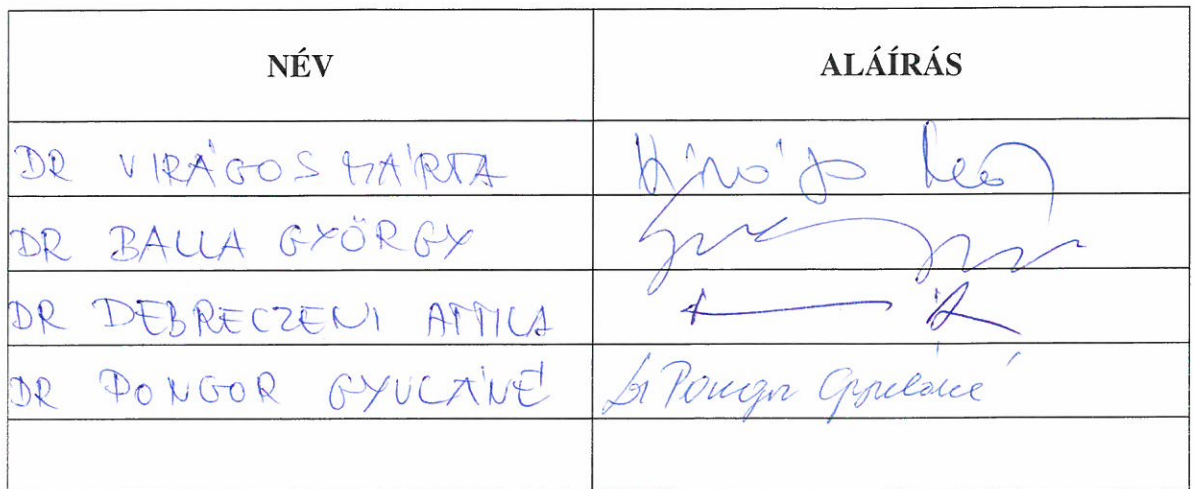 NÉV ALÁÍRÁS
DR VIRÁGOS MÁRTA
DR BALLA GYÖRGY
DR DEBRECZENI ATTILA
DR PONGOR GYULÁNÉ dr Pongor Gyuláné